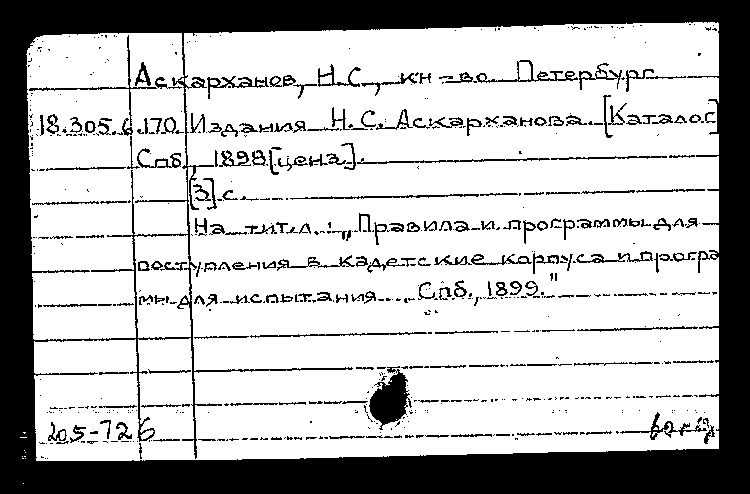 Аскарханов, Н.С., кн-во. Петербург
18.305.6.170. Издания Н.С. Аскарханова. [Каталог]
Спб., 1898 [цена].
[3] с.
На тит.л.: „Правила и программы для
поступления в кадетские корпуса и програ
мы для испытания... Спб., 1899."
205-726